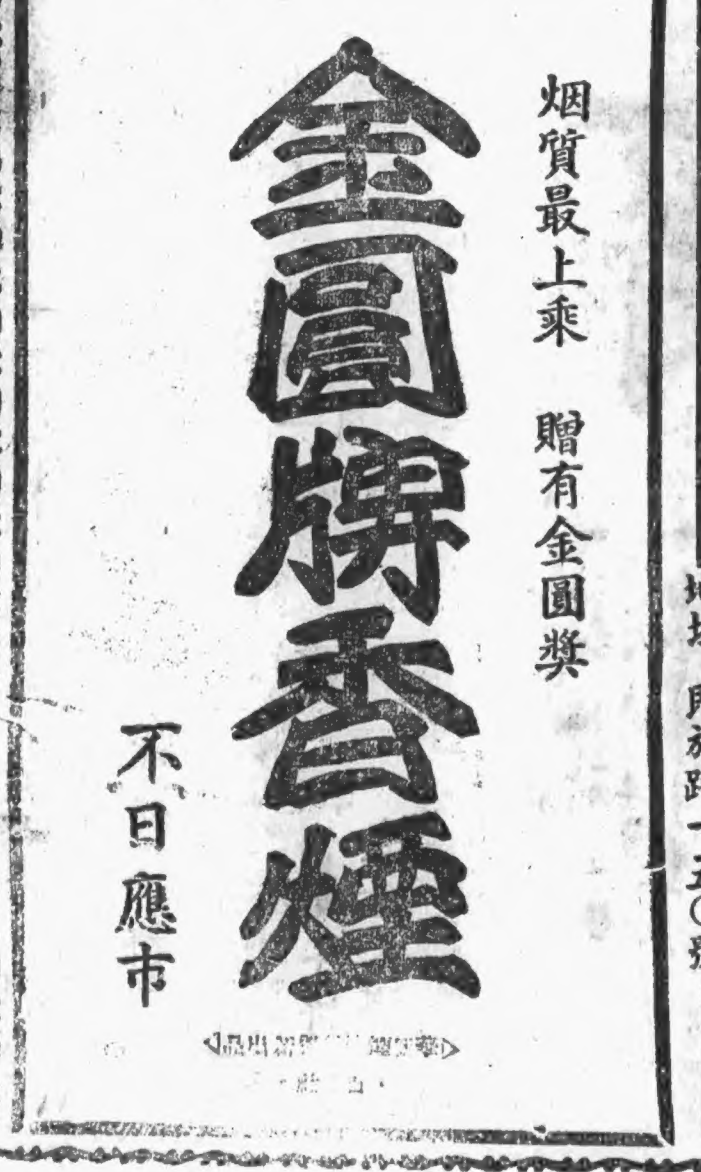 烟質最上乘 贈有金圓獎
金圓牌香煙
不日應市